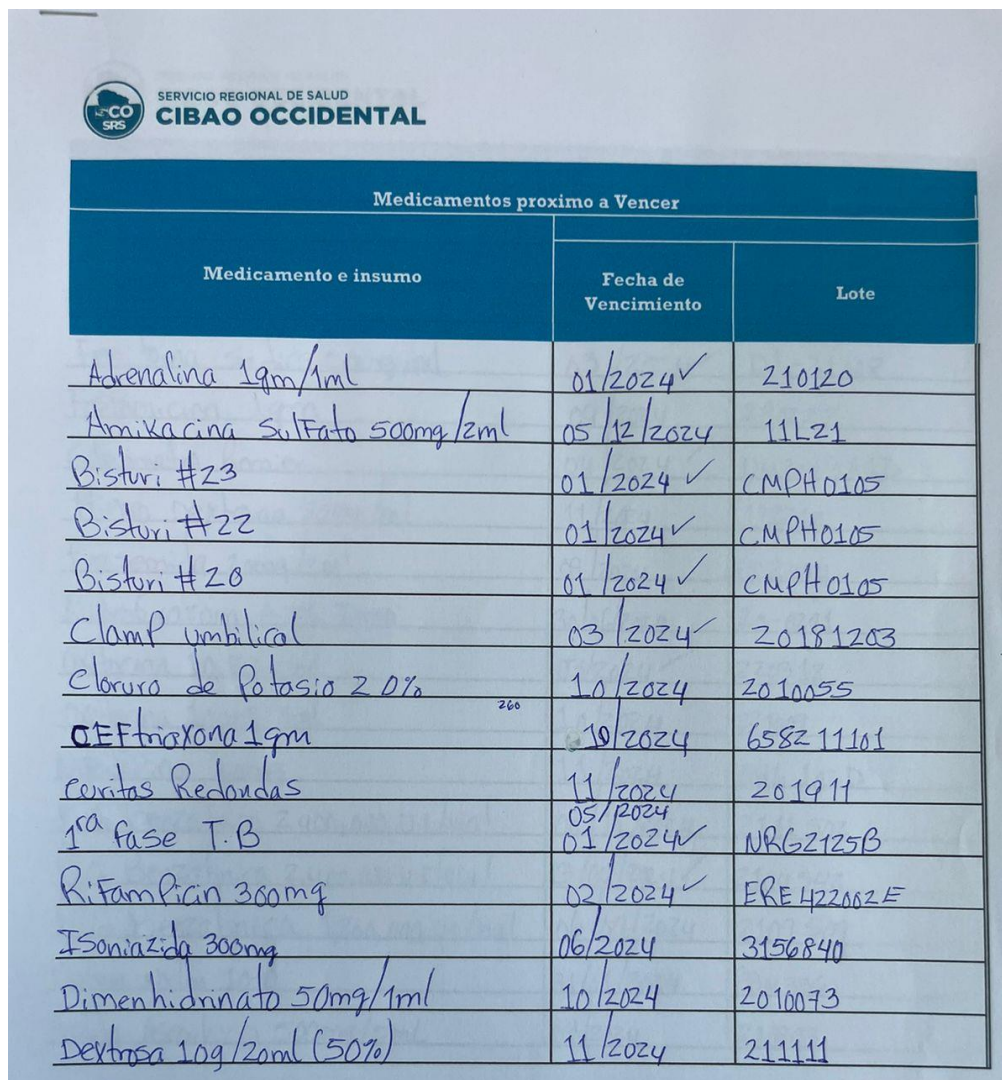 CO
SRS
SERVICIO REGIONAL DE SALUD
CIBAO OCCIDENTAL
Medicamentos proximo a Vencer
Medicamento e insumo Fecha de Vencimiento Lote
Adrenalina 1gm/1ml 01/2024✓ 210120
Amikacina Sulfato 500mg/2ml 05/12/2024 11L21
Bisturi #23 01/2024 ✓ CMPH0105
Bisturi #22 01/2024✓ CMPH0105
Bisturi #20 01/2024 ✓ CMPH0105
Clamp umbilical 03/2024✓ 20181203
Cloruro de Potasio 20% 10/2024 2010055
260
CEFtriaxona 1gm 10/2024 658211101
Curitas Redondas 11/2024 201911
05/2024
1ra fase T.B 01/2024✓ NRG2125B
RiFampicin 300mg 02/2024✓ ERE422002E
ISoniazida 300mg 06/2024 3156840
Dimenhidrinato 50mg/1ml 10/2024 2010073
Dextrosa 10g/20ml (50%) 11/2024 211111